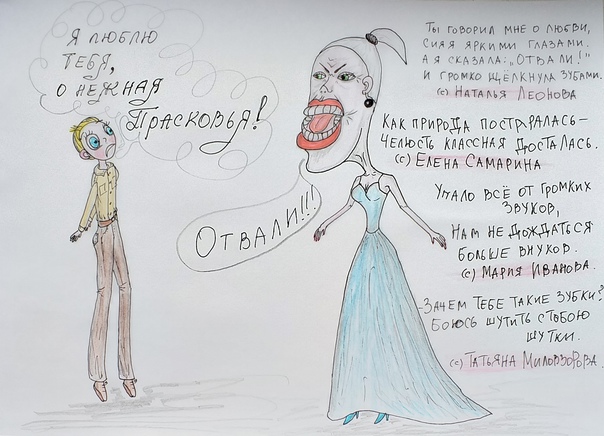 Я люблю
тебя,
о нежная
Прасковья!
Отвали!!!
Ты говорил мне о любви,
сияя яркими глазами.
А я сказала: „Отвали!"
и громко щёлкнула зубами.
(с) Наталья Леонова
Как природа постаралась –
челюсть классная досталась.
(с) Елена Самарина
Упало всё от громких
звуков,
нам не дождаться
больше внуков.
(с) Мария Иванова.
– Зачем тебе такие зубки?
Боюсь шутить с тобою
шутки.
(с) Татьяна Миловзорова.